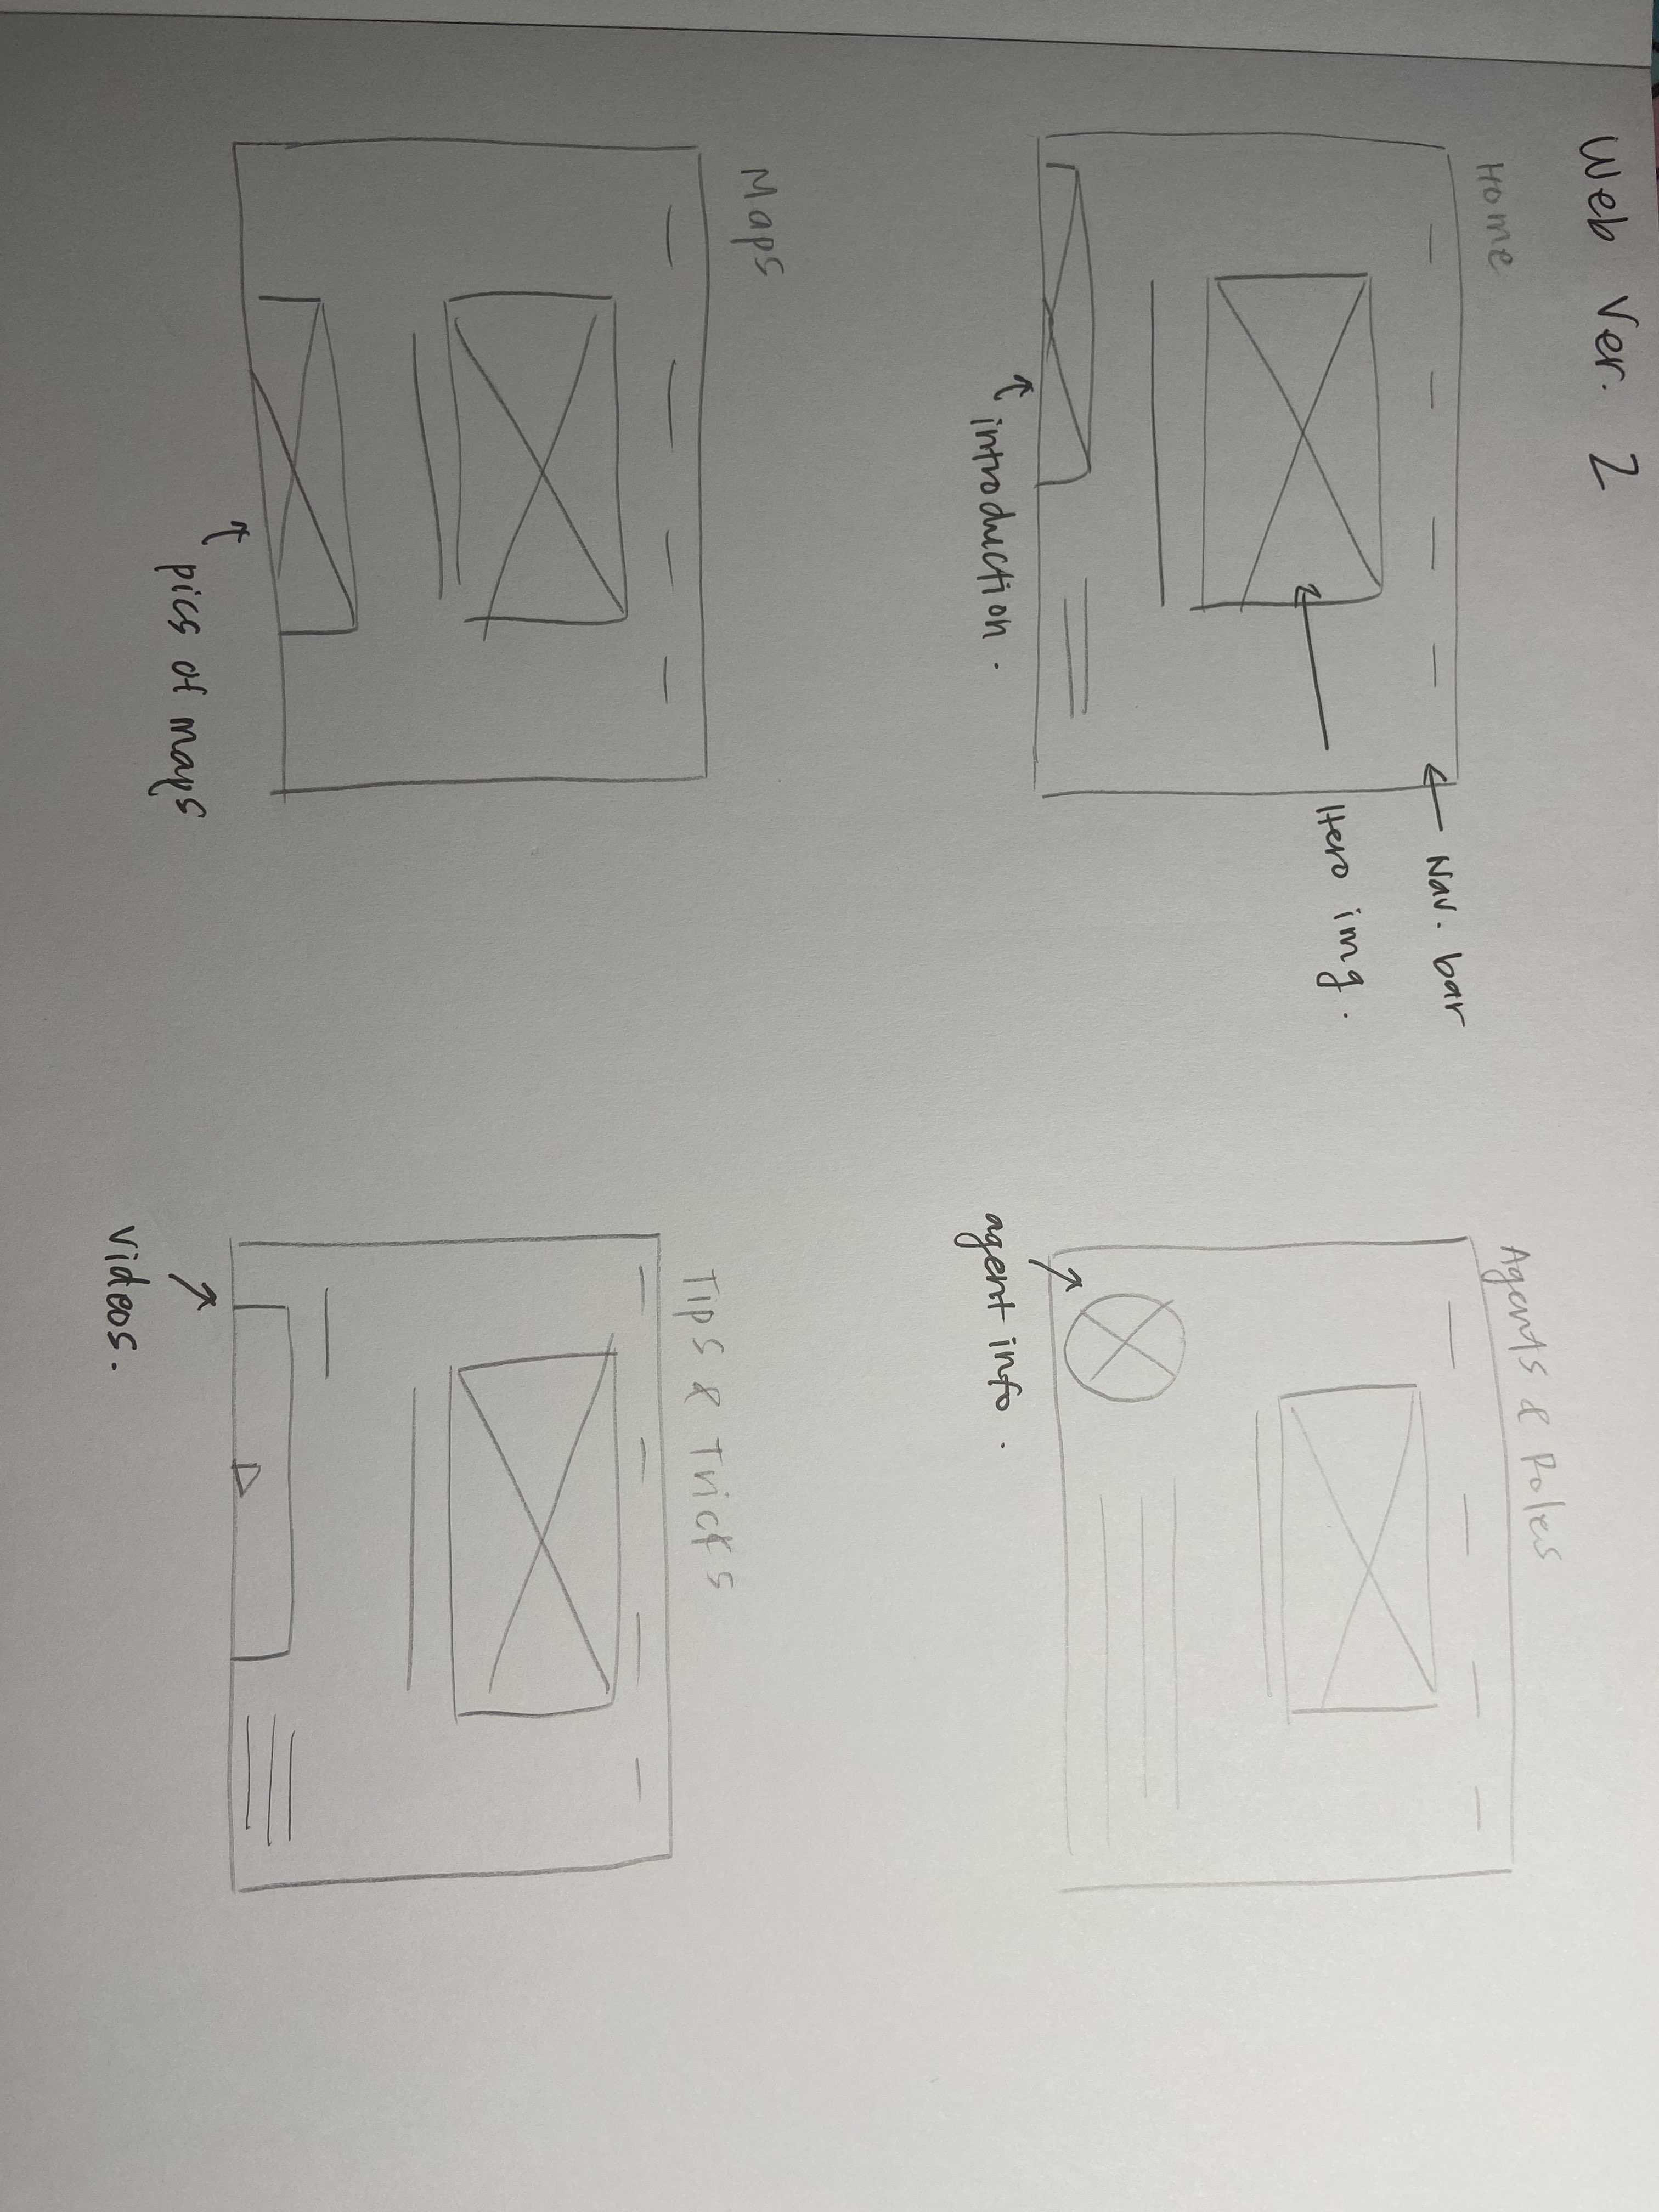 Web Ver. 2
Home
Nav. bar
Hero img.
introduction.
Agents & Roles
agent info.
Maps
pics of maps
Tips & Tricks
videos.